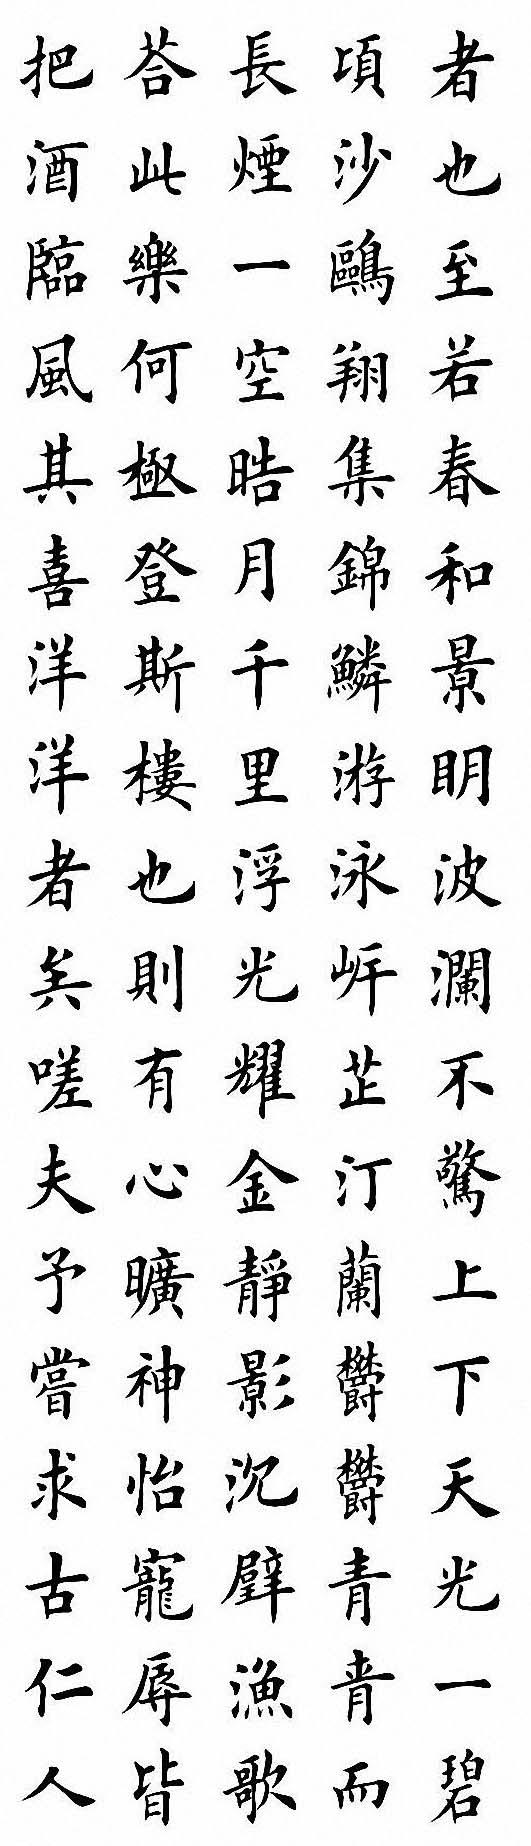 者也至若春和景明波瀾不驚上下天光一碧
頃沙鷗翔集錦鱗游泳岸芷汀蘭欝欝青青而
長煙一空晧月千里浮光耀金靜影沉璧漁歌
荅此樂何極登斯樓也則有心曠神怡寵辱皆
把酒臨風其喜洋洋者矣嗟夫予嘗求古仁人